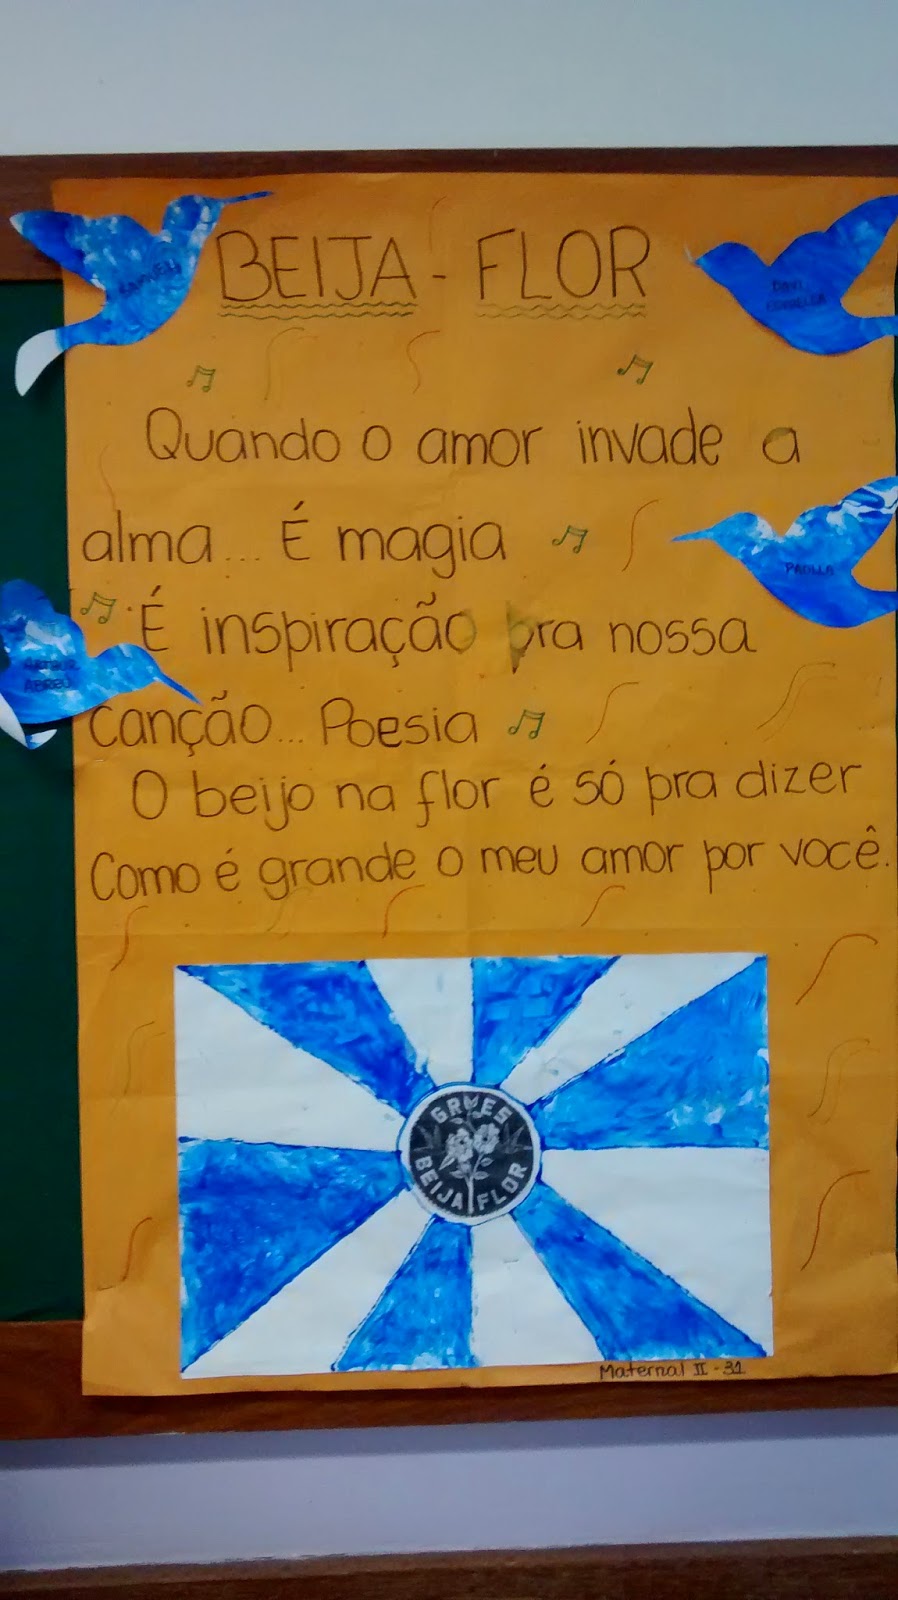 BEIJA - FLOR
DAVI
ESTRELLA
Quando o amor invade a
alma... É magia
PAOLLA
É inspiração pra nossa
ARTHUR
ABREU
canção... Poesia
O beijo na flor é só pra dizer
Como é grande o meu amor por você.
GRES
BEIJA FLOR
Maternal II - 31